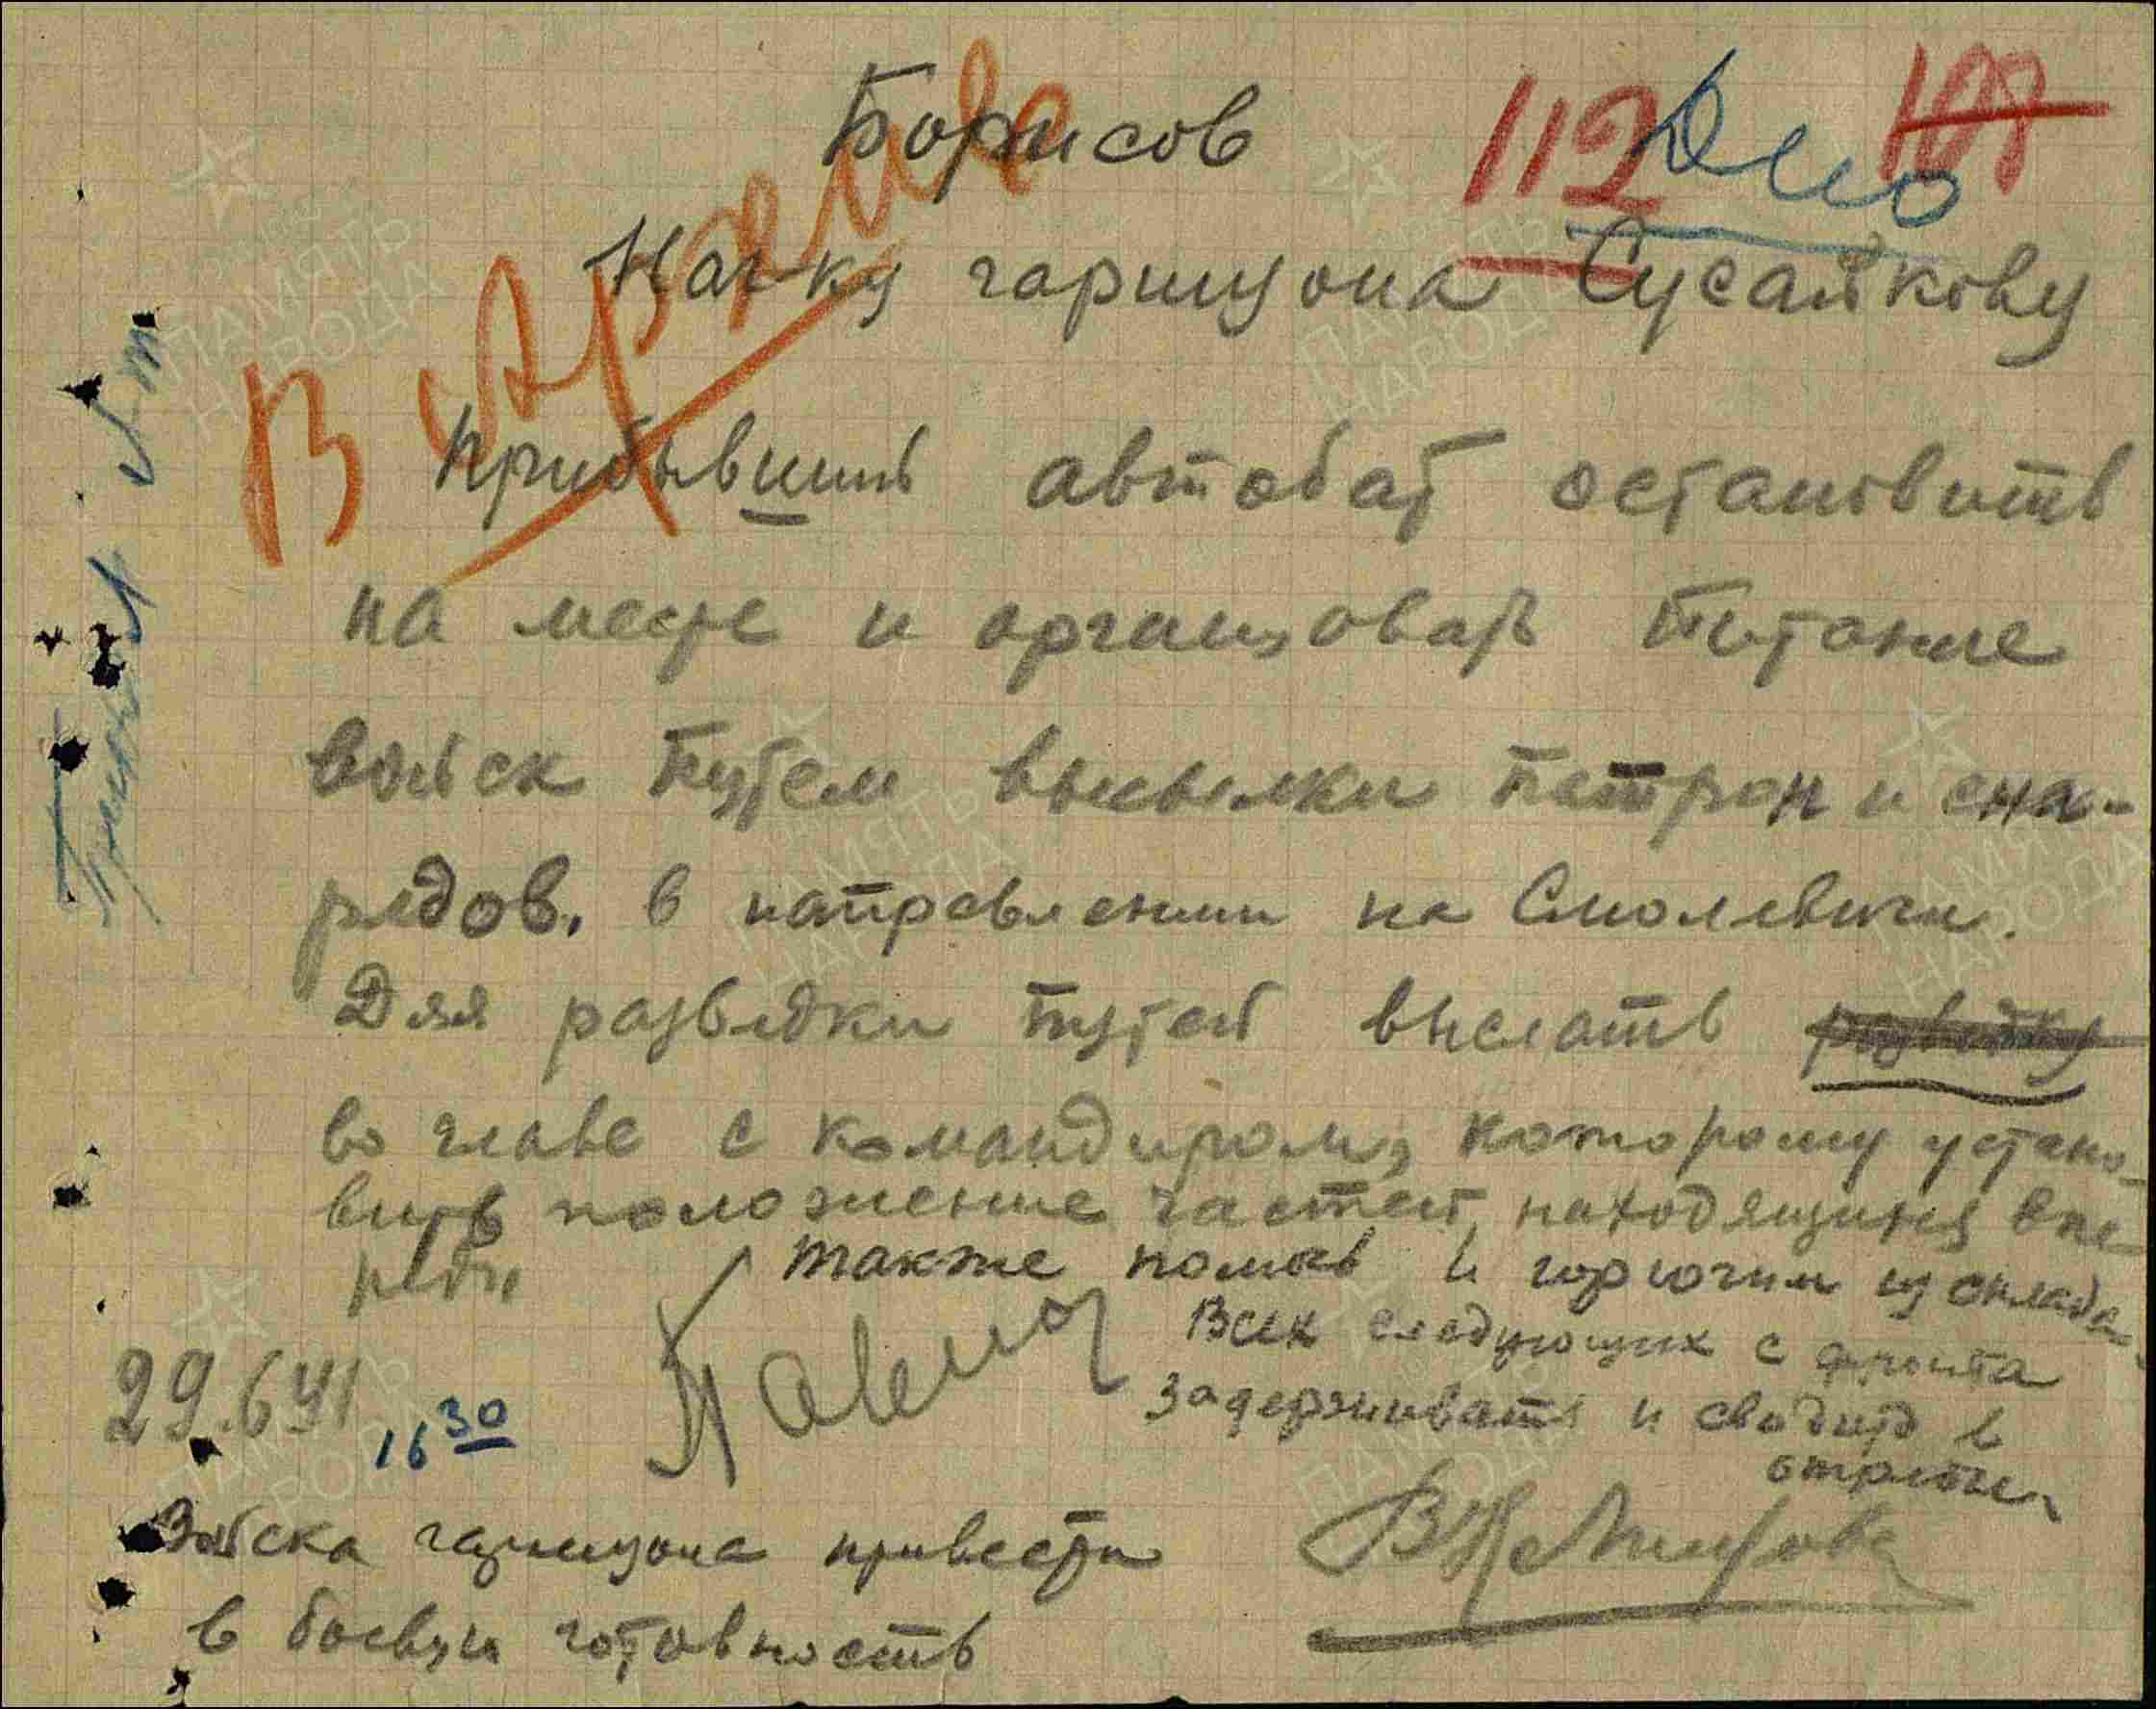 Борисов
112 Дно 107
Нач-ку гарнизона Сусайкову
В Архиве
Прибывший автобат остановить
на месте и организовать питание
войск путем высылки патрон и сна-
рядов. в направлении на Смолевичи.
Для разведки путей выслать разведку
во главе с командиром, которому устано-
вить положение частей, находящихся впе
реди
также помочь и горючим из склада
Всех следующих с фронта
задерживать и сводить в
отряды
29.6 41
16 30
Павлов
Войска гарнизона привести
в боевую готовность
ПАМЯТЬ
НАРОДА